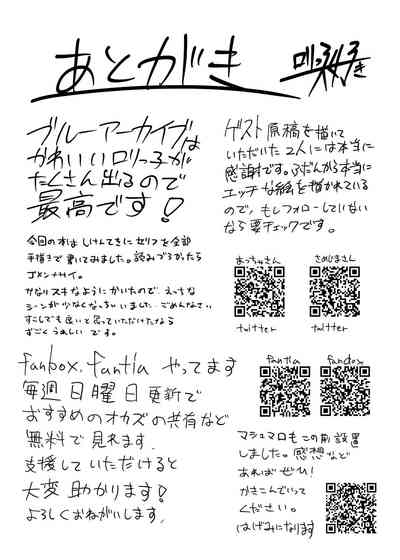 あとがき
ブルーアーカイブは
かわいいロリっ子が
たくさん出るので
最高です!
今回の本は しけんてきに セリフを全部
手描きで書いてみました。読みづらかったら
ゴメンナサイ。
かなりスキなように かいたので、えっちな
シーンが少なくなっちゃいました…ごめんなさい
すこしでも良いと思っていただけたなら
すごく うれしい です。
fanbox、fantia やってます
毎週日曜日更新で
おすすめのオカズの共有など
無料で見れます。
支援していただけると
大変助かります!
よろしくおねがいします。
ゲスト原稿を描いて
いただいた2人には本当に
感謝です。ふだんから本当に
エッチな絵を描かれている
ので、もしフォローしていない
なら要チェックです。
まっちゃさん
さめじまさん
twitter
twitter
fantia
fanbox
マシュマロもこの前設置
しました。感想など
あればぜひ!
かきこんでいって
ください。
はげみになります